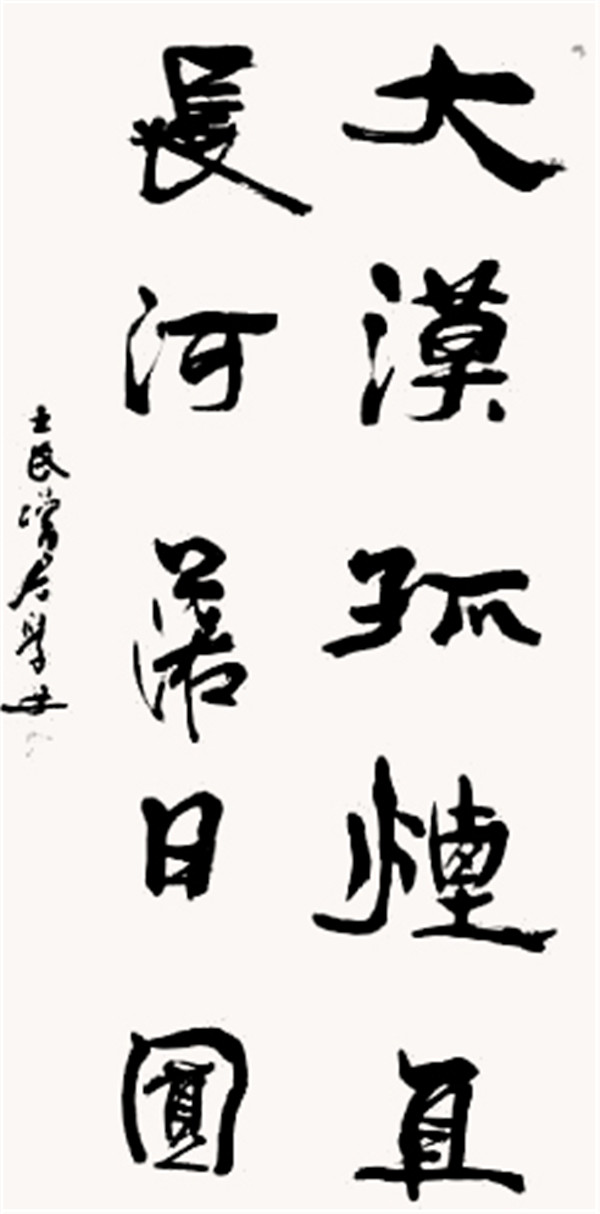 大漠孤煙直
長河落日圓